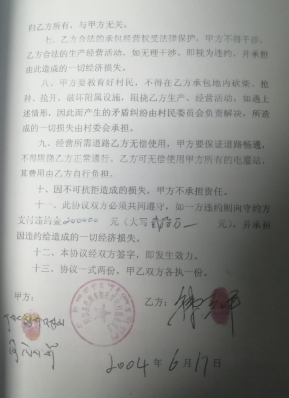 归乙方所有，与甲方无关。
七、乙方合法的承包经营权受法律保护，甲方不得干涉
乙方合法的生产经营活动，如无理干涉，即视为违约，并承担
由此造成的一切经济损失。
八、甲方要教育好村民，不得在乙方承包地内砍柴、抢
种、挖井、破坏附属设施，阻挠乙方生产、经营活动，如遇上
述情形，因此而产生的矛盾纠纷由村民委员会负责解决，所造
成的一切损失由村委会承担。
九、经营所需道路乙方无偿使用，甲方要保证道路畅通，
不得阻挠乙方正常通行，乙方可无偿使用甲方所有的电灌站，
其费用由乙方自行负担。
十、因不可抗拒造成的损失，甲方不承担责任。
十一、此协议双方必须共同遵守，如一方违约则向守约方
支付违约金200000元（大写 元），并承担
因违约给造成的一切经济损失。
十二、本协议经双方签字，即发生效力。
十三、协议一式两份，甲乙双方各执一份。
甲方：
乙方：
2004年6月17日